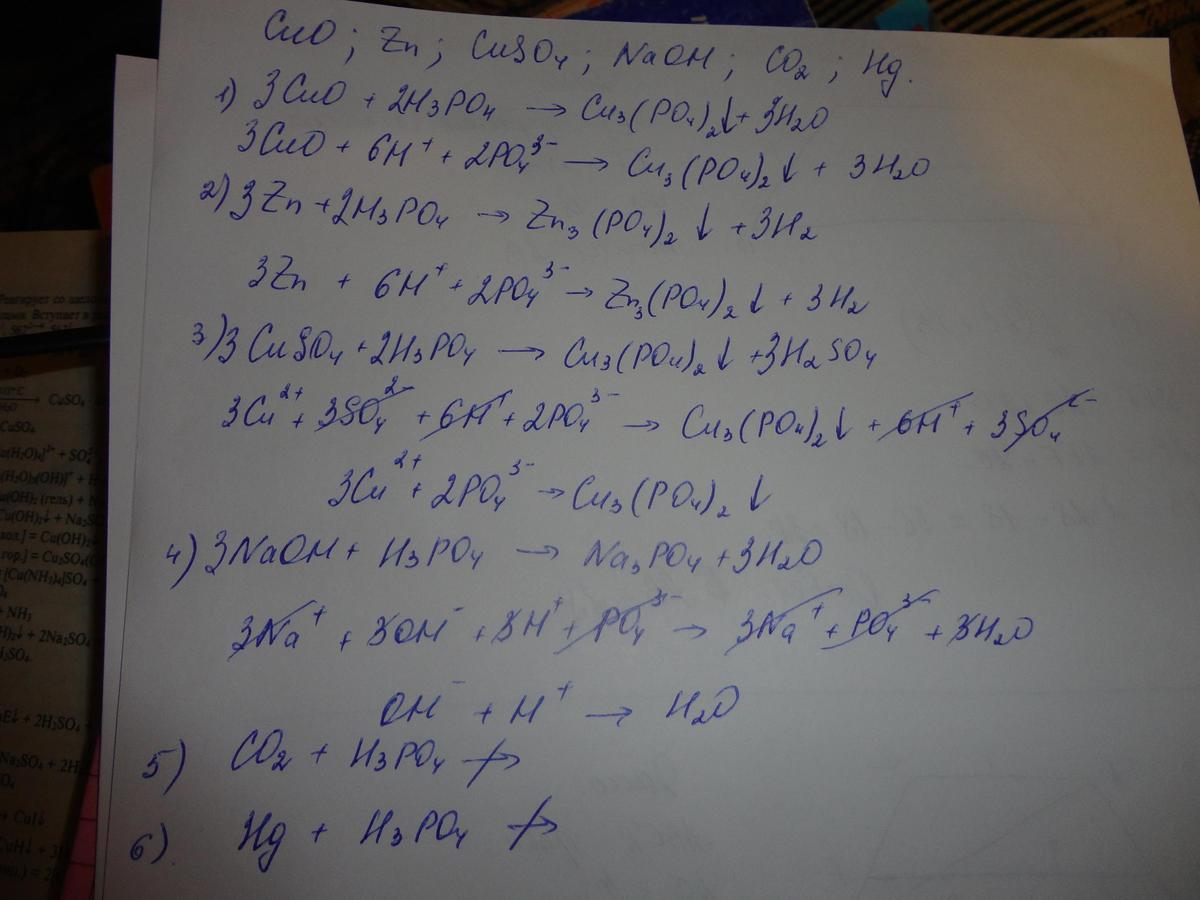 CuO ; Zn ; CuSO₄ ; NaOH ; CO₂ ; Hg.
1) 3CuO + 2H₃PO₄ → Cu₃(PO₄)₂↓ + 3H₂O
3CuO + 6H⁺ + 2PO₄³⁻ → Cu₃(PO₄)₂↓ + 3H₂O
2) 3Zn + 2H₃PO₄ → Zn₃(PO₄)₂↓ + 3H₂
3Zn + 6H⁺ + 2PO₄³⁻ → Zn₃(PO₄)₂↓ + 3H₂
3) 3CuSO₄ + 2H₃PO₄ → Cu₃(PO₄)₂↓ + 3H₂SO₄
3Cu²⁺ + 3SO₄²⁻ + 6H⁺ + 2PO₄³⁻ → Cu₃(PO₄)₂↓ + 6H⁺ + 3SO₄²⁻
3Cu²⁺ + 2PO₄³⁻ → Cu₃(PO₄)₂↓
4) 3NaOH + H₃PO₄ → Na₃PO₄ + 3H₂O
3Na⁺ + 3OH⁻ + 3H⁺ + PO₄³⁻ → 3Na⁺ + PO₄³⁻ + 3H₂O
OH⁻ + H⁺ → H₂O
5) CO₂ + H₃PO₄ ↛
6). Hg + H₃PO₄ ↛
Реагирует со
Вступает в
CuSO₄
CuSO₄
+ SO₄
(гель) + N
Cu(OH)₂↓ + Na₂SO
хол.] = Cu(OH)₂
гор.] = Cu₂SO₄(O
[Cu(NH₃)₄]SO₄
+ NH₃
↓ + 2Na₂SO₄
H₂SO₄
↓ + 2H₂SO₄
Na₂SO₄ + 2H
+ CuI↓
CuH↓ + 3